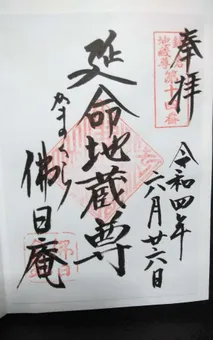 奉拝
鎌倉
地蔵尊第十四番
令和四年
六月廿六日
延命地蔵尊
かまくら
佛日庵